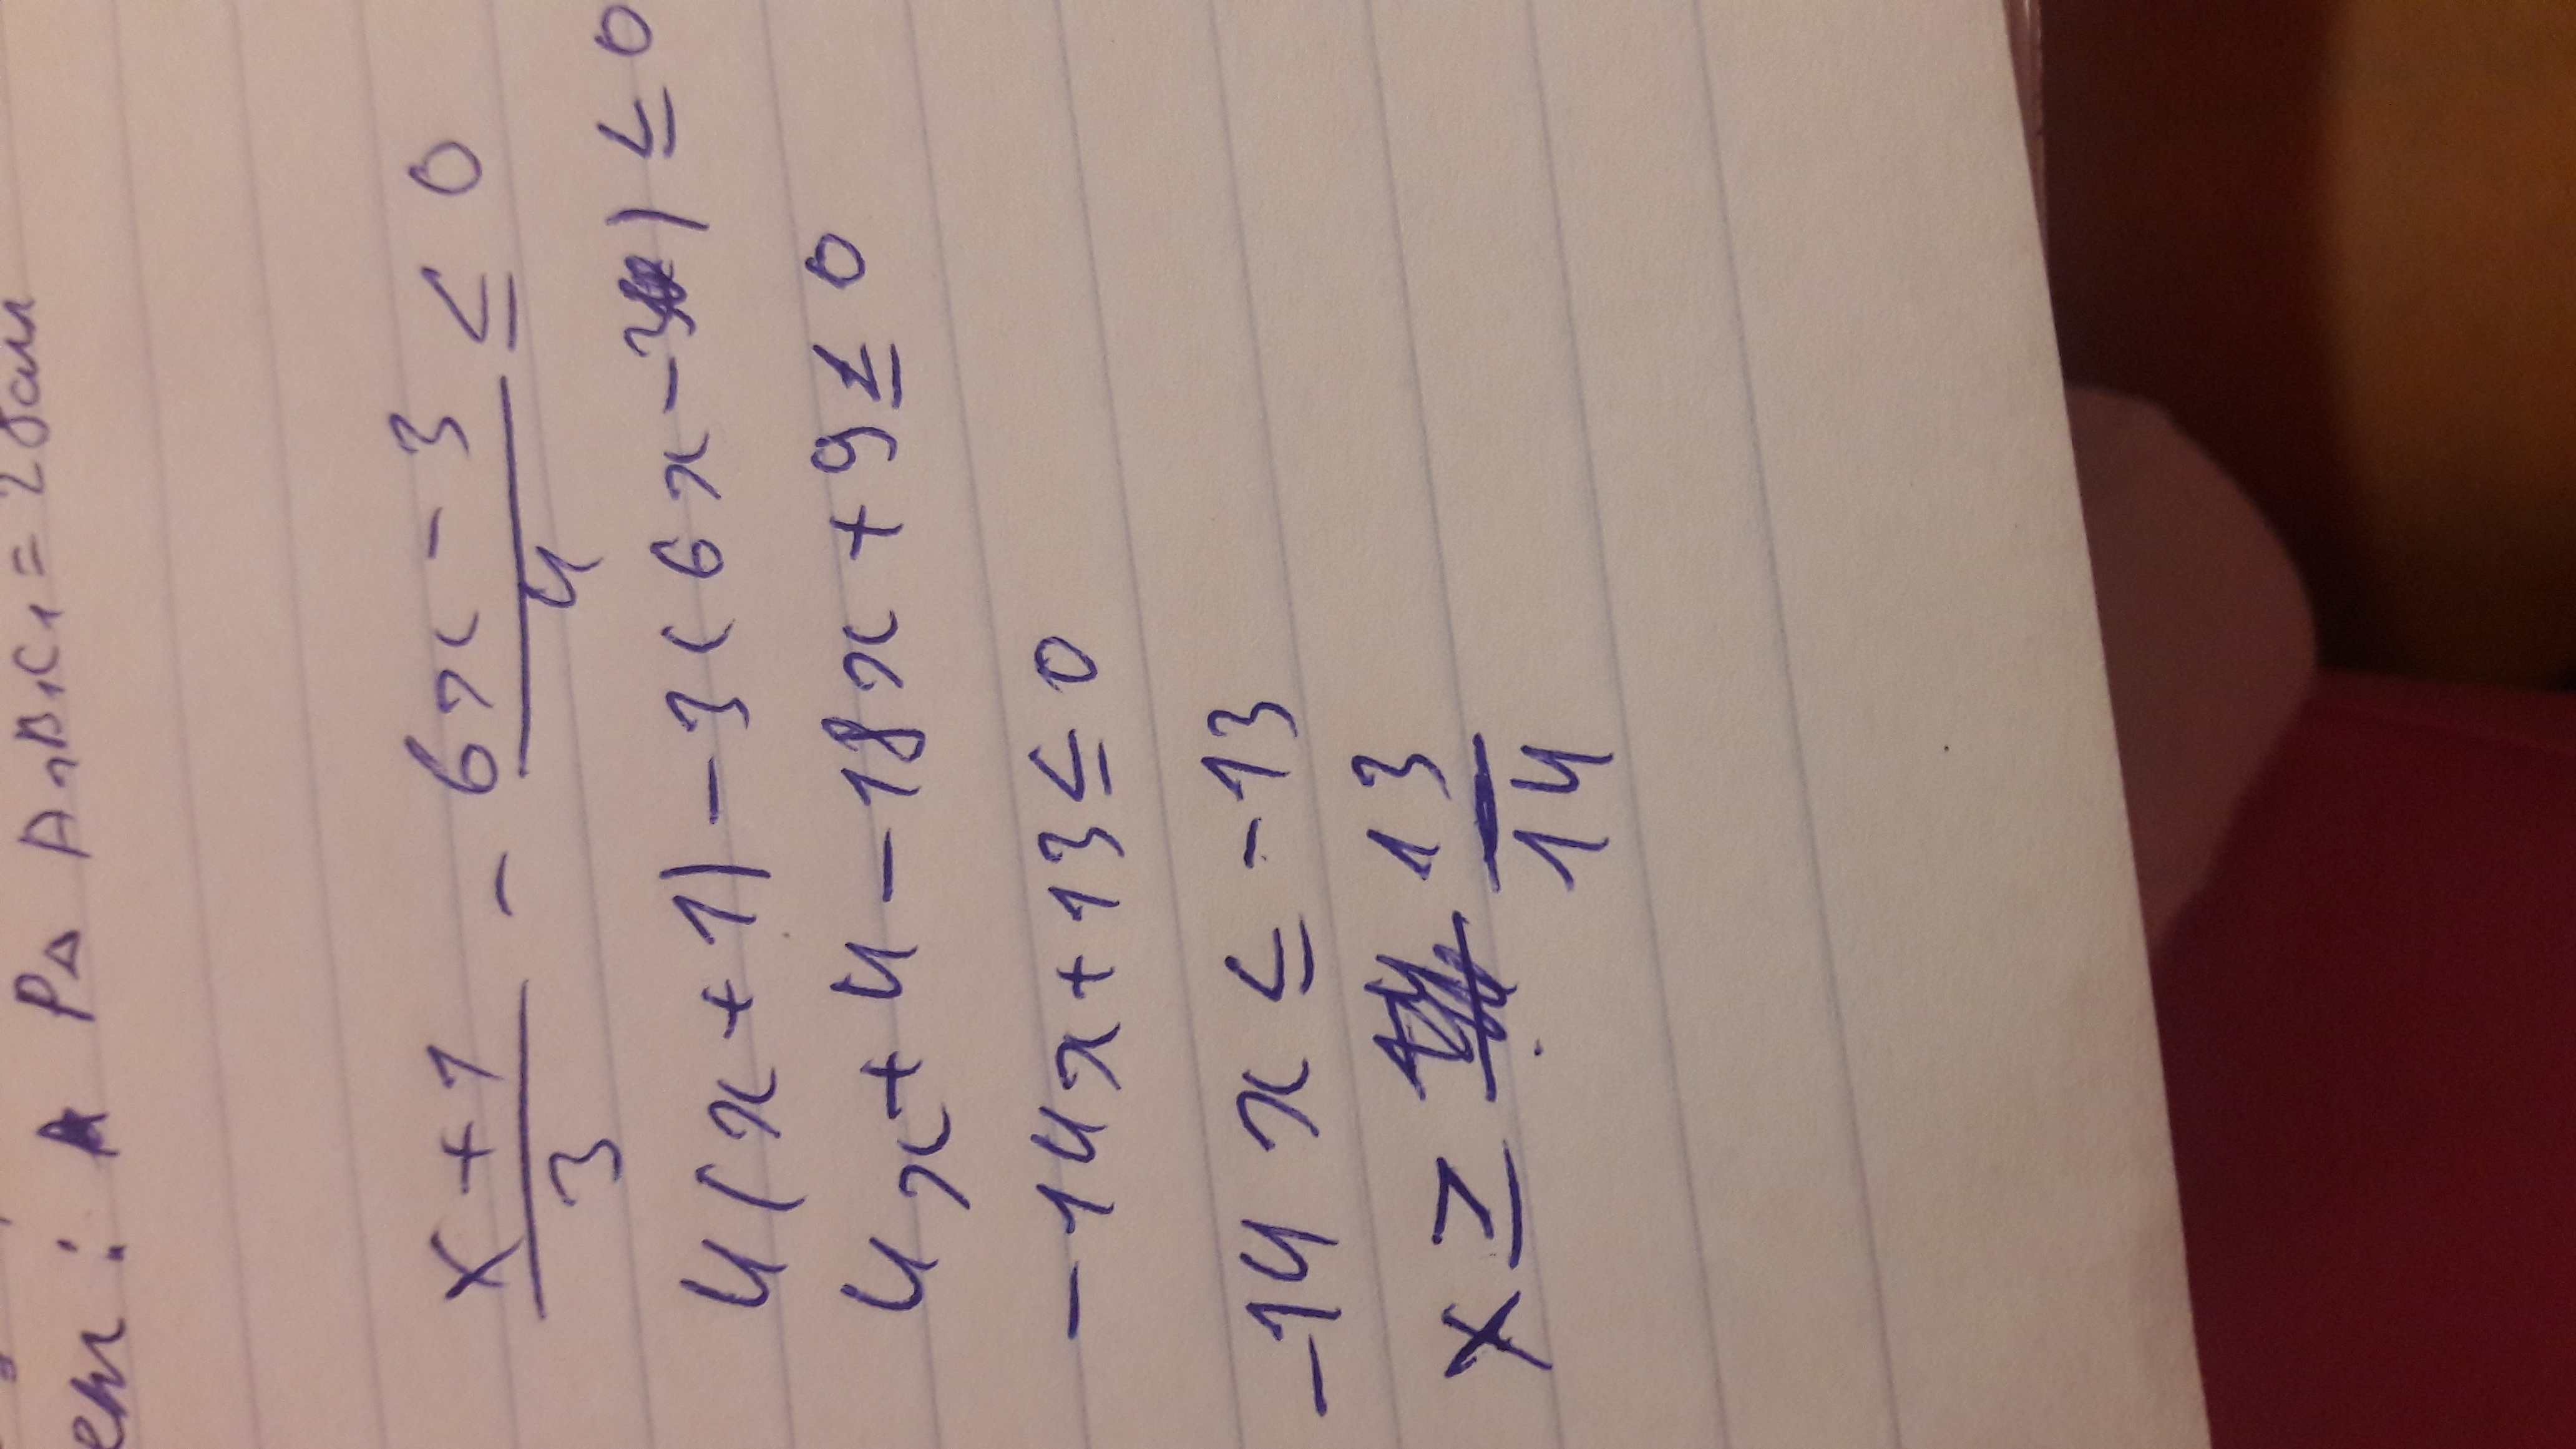 P△ A₁B₁C₁ = 28см
(x+1)/3 - (6x-3)/4 ≤ 0
4(x+1)-3(6x-3) ≤ 0
4x+4-18x+9 ≤ 0
-14x+13 ≤ 0
-14x ≤ -13
x ≥ 13/14